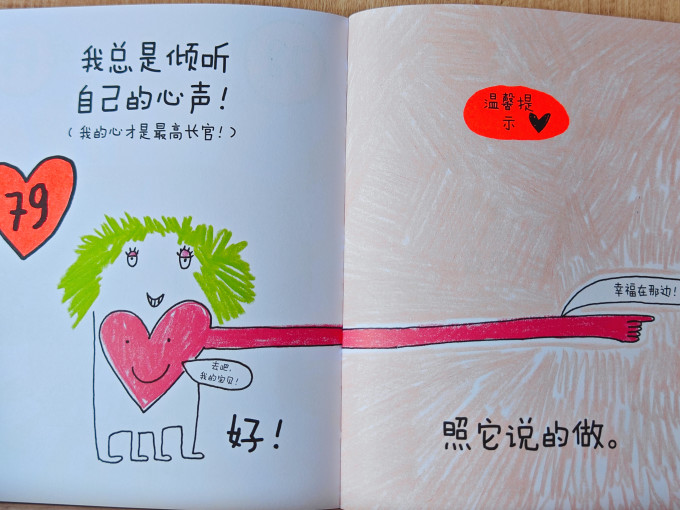 我总是倾听
自己的心声！
（我的心才是最高长官！）
79
去吧，
我的宝贝！
好！
温馨提
示
幸福在那边！
照它说的做。